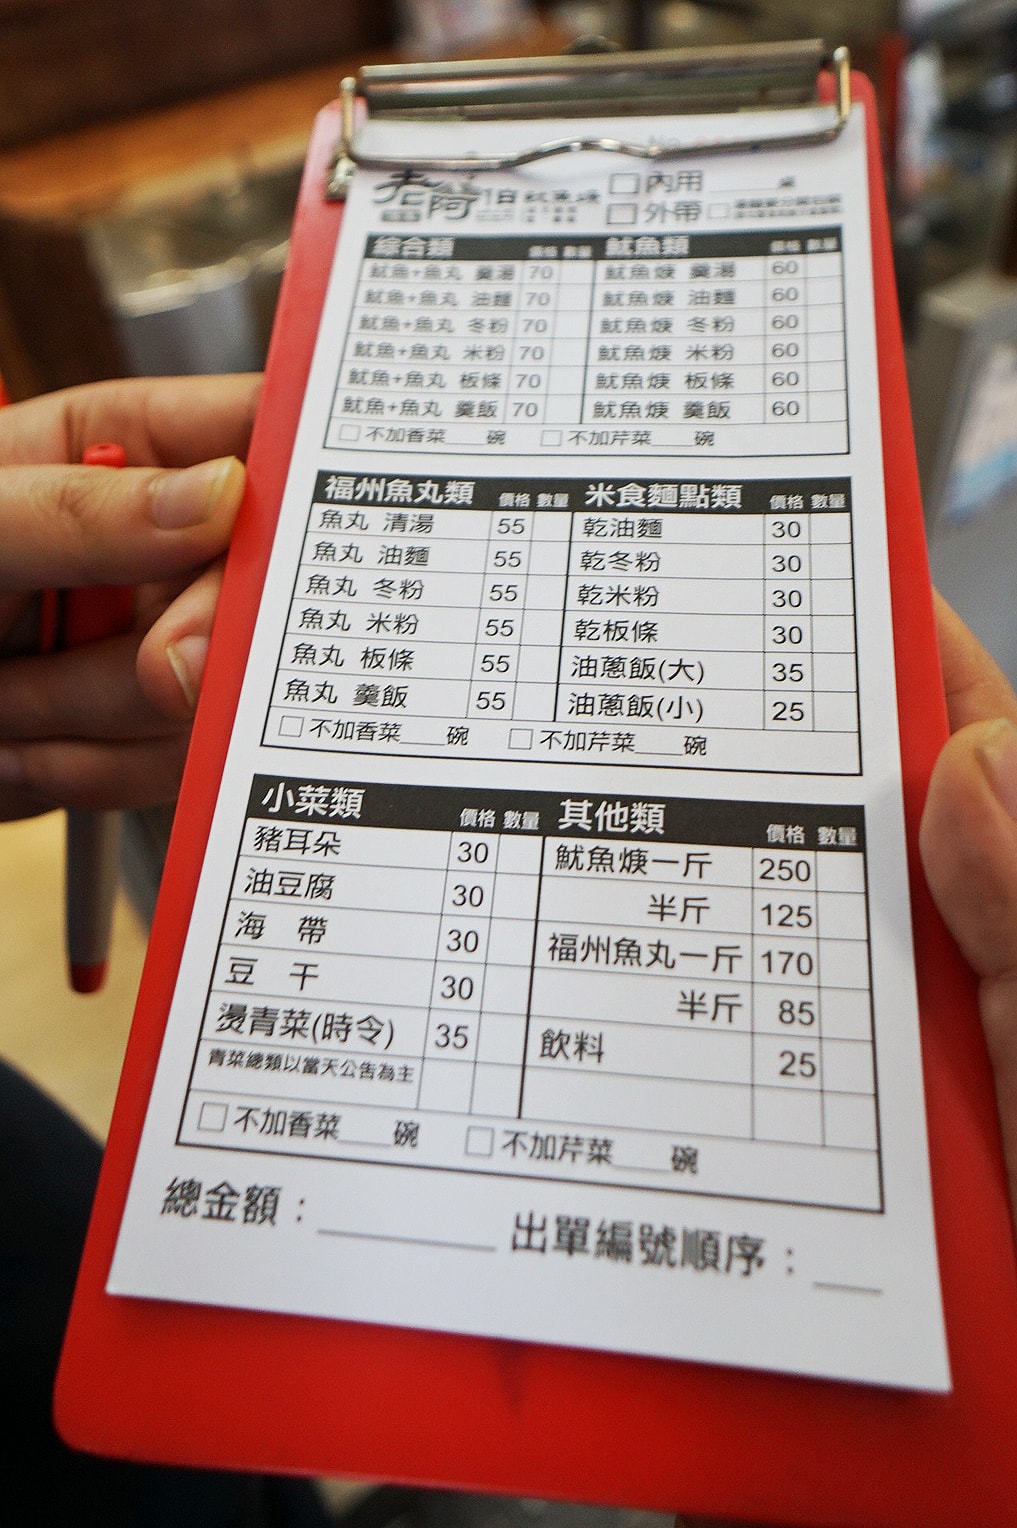 老阿伯魷魚焿
□內用______桌
□外帶
綜合類 價格 數量
魷魚+魚丸 羹湯 70
魷魚+魚丸 油麵 70
魷魚+魚丸 冬粉 70
魷魚+魚丸 米粉 70
魷魚+魚丸 板條 70
魷魚+魚丸 羹飯 70
魷魚類 價格 數量
魷魚焿 羹湯 60
魷魚焿 油麵 60
魷魚焿 冬粉 60
魷魚焿 米粉 60
魷魚焿 板條 60
魷魚焿 羹飯 60
□不加香菜___碗 □不加芹菜___碗
福州魚丸類 價格 數量
魚丸 清湯 55
魚丸 油麵 55
魚丸 冬粉 55
魚丸 米粉 55
魚丸 板條 55
魚丸 羹飯 55
米食麵點類 價格 數量
乾油麵 30
乾冬粉 30
乾米粉 30
乾板條 30
油蔥飯(大) 35
油蔥飯(小) 25
□不加香菜___碗 □不加芹菜___碗
小菜類 價格 數量
豬耳朵 30
油豆腐 30
海 帶 30
豆 干 30
燙青菜(時令) 35
青菜總類以當天公告為主
其他類 價格 數量
魷魚焿一斤 250
半斤 125
福州魚丸一斤 170
半斤 85
飲料 25
□不加香菜___碗 □不加芹菜___碗
總金額：________ 出單編號順序：___